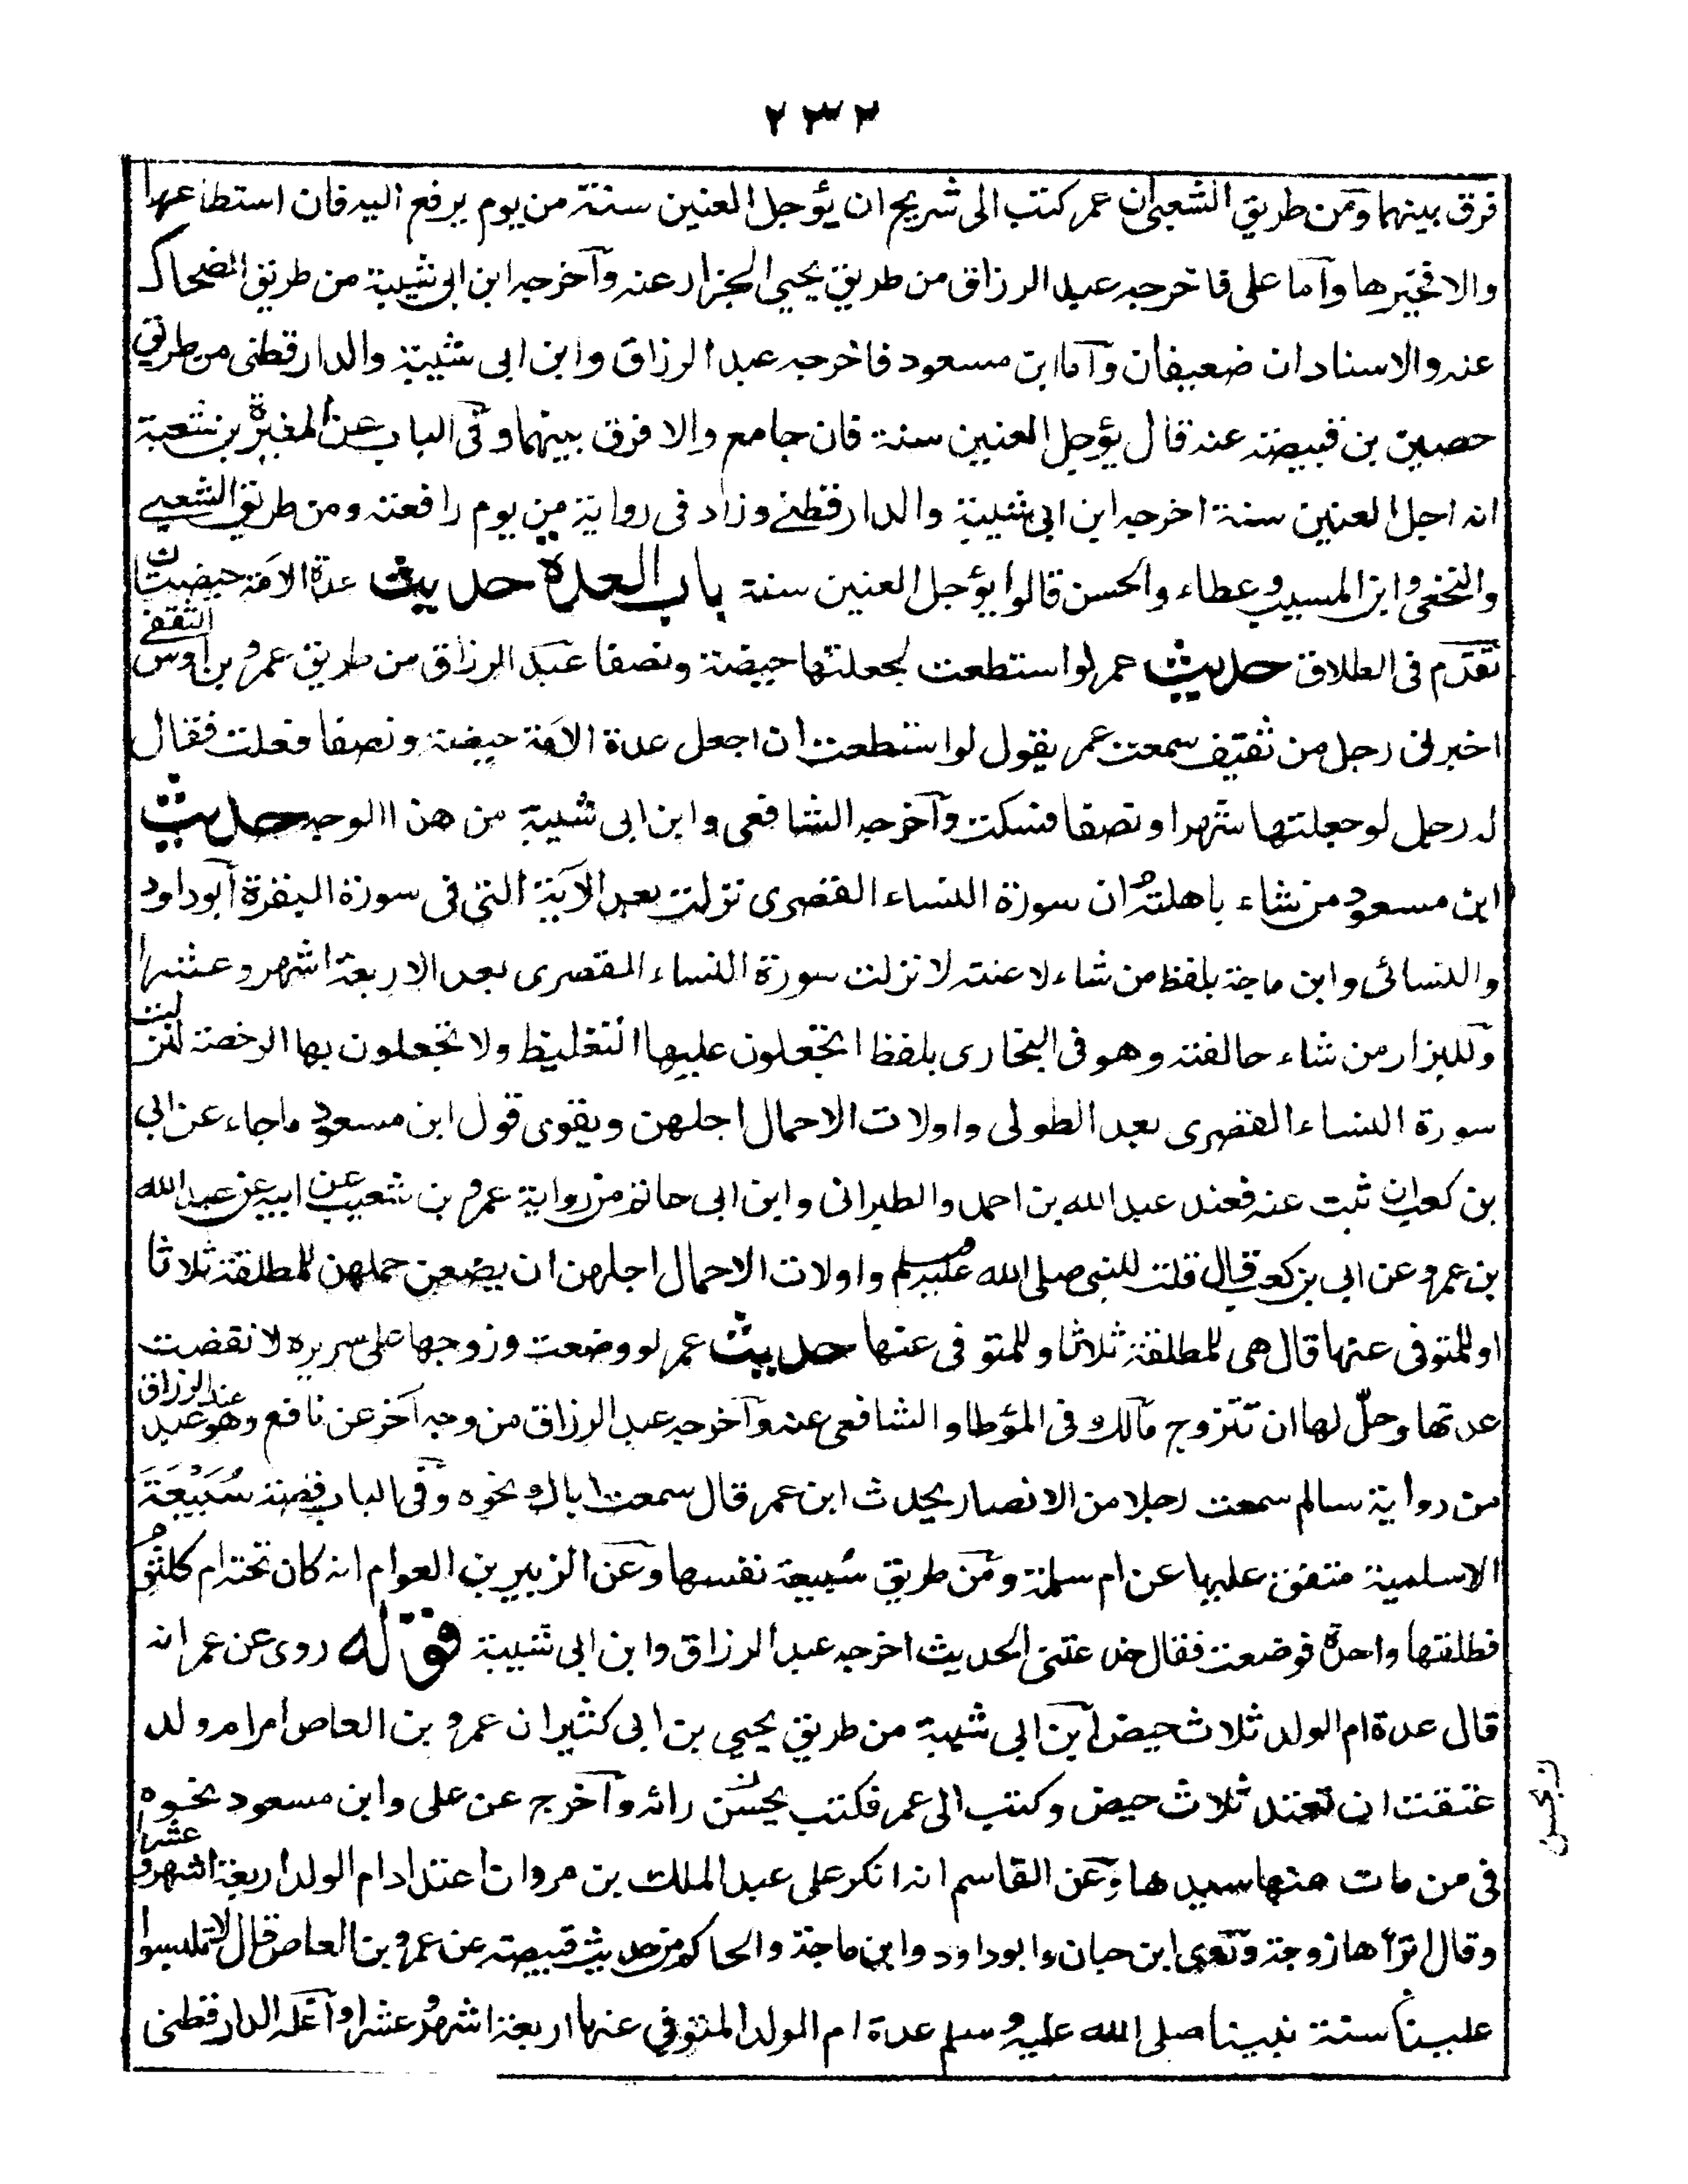 ٢٣٢
فرق بينهما ومن طريق الشعبى ان عمر كتب الى شريح ان يؤجل العنين سنة من يوم يرفع اليه فان استطاعها
والا فخيرها واما على فاخرجه عبد الرزاق من طريق يحيى الجزار عنه واخرجه ابن ابى شيبة من طريق الضحاك
عنه والاسنادان ضعيفان واما ابن مسعود فاخرجه عبد الرزاق وابن ابى شيبة والدارقطنى من طريق
حصين بن قبيصة عنه قال يؤجل العنين سنة فان جامع والا فرق بينهما وفى الباب عن المغيرة بن شعبة
انه اجل العنين سنة اخرجه ابن ابى شيبة والدارقطنے وزاد فى رواية من يوم رافعته ومن طريق الشعبے
والنخعى وابن المسيب وعطاء والحسن قالوا يؤجل العنين سنة باب العدة حديث عدة الامة حيضتان
تقدم فى الطلاق حديث عمر لو استطعت لجعلتها حيضة ونصفا عبد الرزاق من طريق عمرو بن اوس الثقفے
اخبرنى رجل من ثقيف سمعت عمر يقول لو استطعت ان اجعل عدة الامة حيضة ونصفا فعلت فقال
له رجل لو جعلتها شهرا ونصفا فسكت واخرجه الشافعى وابن ابى شيبة من هذا الوجه حديث
ابن مسعود من شاء باهلته ان سورة النساء القصرى نزلت بعد الاية التى فى سورة البقرة ابو داود
والنسائى وابن ماجة بلفظ من شاء لاعنته لا نزلت سورة النساء القصرى بعد الاربعة اشهر وعشرا
وللبزار من شاء حالفته وهو فى البخارى بلفظ اتجعلون عليها التغليظ ولا تجعلون بها الرخصة لنزلت
سورة النساء القصرى بعد الطولى واولات الاحمال اجلهن ويقوى قول ابن مسعود ما جاء عن ابى
بن كعب ان ثبت عنه فعند عبد الله بن احمد والطبرانى وابن ابى حاتم من رواية عمرو بن شعيب عن ابيه عن عبد الله
بن عمرو عن ابى بن كعب قال قلت للنبى صلى الله عليه وسلم واولات الاحمال اجلهن ان يضعن حملهن للمطلقة ثلاثا
او للمتوفى عنها قال هى للمطلقة ثلاثا وللمتوفى عنها حديث عمر لو وضعت وزوجها على سريره لانقضت
عدتها وحلّ لها ان تتزوج مالك فى المؤطا والشافعى عنه واخرجه عبد الرزاق من وجه آخر عن نافع وهو عند عبد الرزاق
من رواية سالم سمعت رجلا من الانصار يحدث ابن عمر قال سمعت اباك نحوه وفى الباب قصة سُبَيْعَةَ
الاسلمية متفق عليها عن ام سلمة ومن طريق سُبيعة نفسها وعن الزبير بن العوام انه كان تحته ام كلثوم
فطلقتها واحدة فوضعت فقال خدعتنى الحديث اخرجه عبد الرزاق وابن ابى شيبة قوله روى عن عمر انه
قال عدة ام الولد ثلاث حيض ابن ابى شيبة من طريق يحيى بن ابى كثير ان عمرو بن العاص امر ام ولد
عتقت ان تعتد ثلاث حيض وكتب الى عمر فكتب بحُسْن رائه واخرج عن على وابن مسعود نحوه
فى من مات عنها سيدها وعن القاسم انه انكر على عبد الملك بن مروان اعتداد ام الولد اربعة اشهر وعشرا
وقال اتراها زوجة وروى ابن حبان وابو داود وابن ماجة والحاكم من حديث قبيصة عن عمرو بن العاص قال لا تلبسوا
علينا سنة نبينا صلى الله عليه وسلم عدة ام الولد المتوفى عنها اربعة اشهر وعشرا واعله الدارقطنى